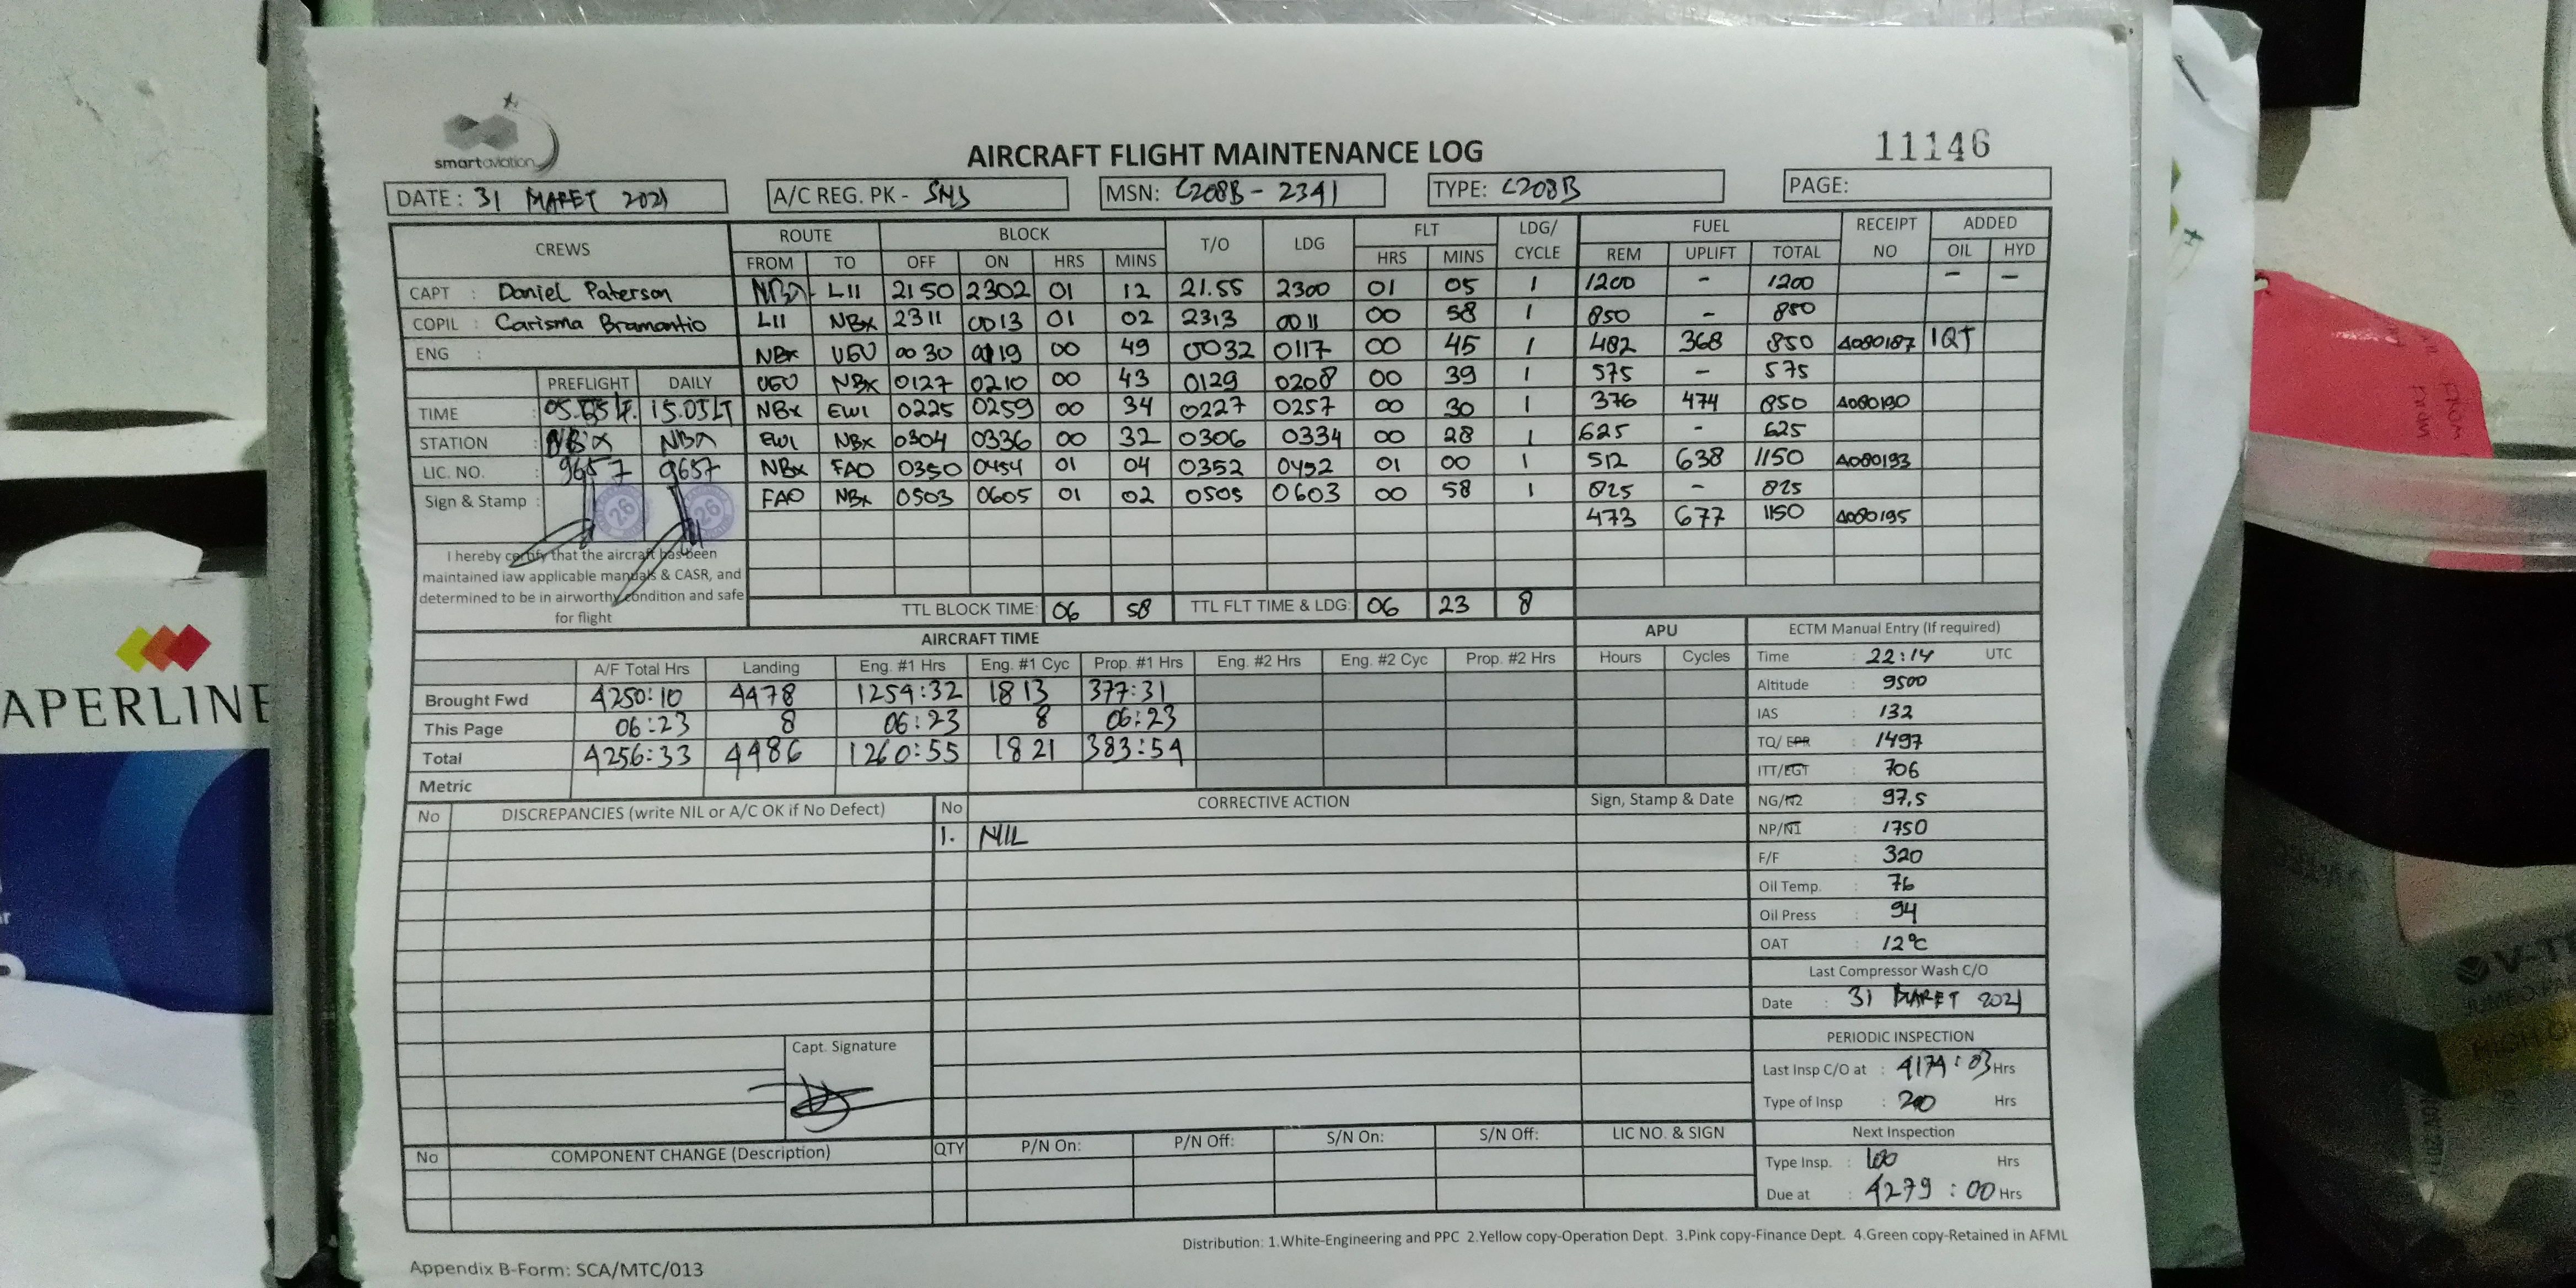 smart aviation
AIRCRAFT FLIGHT MAINTENANCE LOG
11146
DATE : 31 MARET 2021 A/C REG. PK - SNS MSN: C208B - 2341 TYPE: C208B PAGE:
CREWS ROUTE BLOCK T/O LDG FLT LDG/ CYCLE FUEL RECEIPT NO ADDED
FROM TO OFF ON HRS MINS HRS MINS REM UPLIFT TOTAL OIL HYD
CAPT : Daniel Paterson NBX LII 2150 2302 01 12 21.55 2300 01 05 1 1200 - 1200 - -
COPIL : Carisma Bramantio LII NBX 2311 0013 01 02 2313 0011 00 58 1 850 - 850
ENG : NBX UGU 0030 0119 00 49 0032 0117 00 45 1 482 368 850 A080187 1QT
PREFLIGHT DAILY UGU NBX 0127 0210 00 43 0129 0208 00 39 1 575 - 575
TIME : 15.05LT NBX EWI 0225 0259 00 34 0227 0257 00 30 1 376 474 850 A080190
STATION : NBX NBX EWI NBX 0304 0336 00 32 0306 0334 00 28 1 625 - 625
LIC. NO. : 9657 9657 NBX FAO 0350 0454 01 04 0352 0452 01 00 1 512 638 1150 A080193
Sign & Stamp : 26 26 FAO NBX 0503 0605 01 02 0505 0603 00 58 1 825 - 825
473 677 1150 A080195
I hereby certify that the aircraft has been
maintained iaw applicable manuals & CASR, and
determined to be in airworthy condition and safe
for flight
TTL BLOCK TIME: 06 58 TTL FLT TIME & LDG: 06 23 8
AIRCRAFT TIME APU ECTM Manual Entry (If required)
A/F Total Hrs Landing Eng. #1 Hrs Eng. #1 Cyc Prop. #1 Hrs Eng. #2 Hrs Eng. #2 Cyc Prop. #2 Hrs Hours Cycles Time : 22:14 UTC
Brought Fwd 4250:10 4478 1254:32 1813 377:31 Altitude : 9500
This Page 06:23 8 06:23 8 06:23 IAS : 132
Total 4256:33 4486 1260:55 1821 383:54 TQ/ EPR : 1497
Metric ITT/EGT : 706
No DISCREPANCIES (write NIL or A/C OK if No Defect) No CORRECTIVE ACTION Sign, Stamp & Date NG/N2 : 97,5
1. NIL NP/N1 : 1750
F/F : 320
Oil Temp. : 76
Oil Press : 94
OAT : 12°C
Last Compressor Wash C/O
Date : 31 MARET 2021
PERIODIC INSPECTION
Capt. Signature
Last Insp C/O at : 4174:03 Hrs
Type of Insp : 200 Hrs
No COMPONENT CHANGE (Description) QTY P/N On: P/N Off: S/N On: S/N Off: LIC NO. & SIGN Next Inspection
Type Insp. : 100 Hrs
Due at : 4279:00 Hrs
Distribution: 1.White-Engineering and PPC 2.Yellow copy-Operation Dept. 3.Pink copy-Finance Dept. 4.Green copy-Retained in AFML
Appendix B-Form: SCA/MTC/013
APERLINE